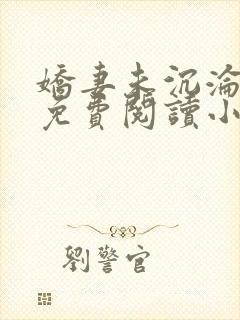 嬌妻未沉淪
免費閱讀小
劉警官